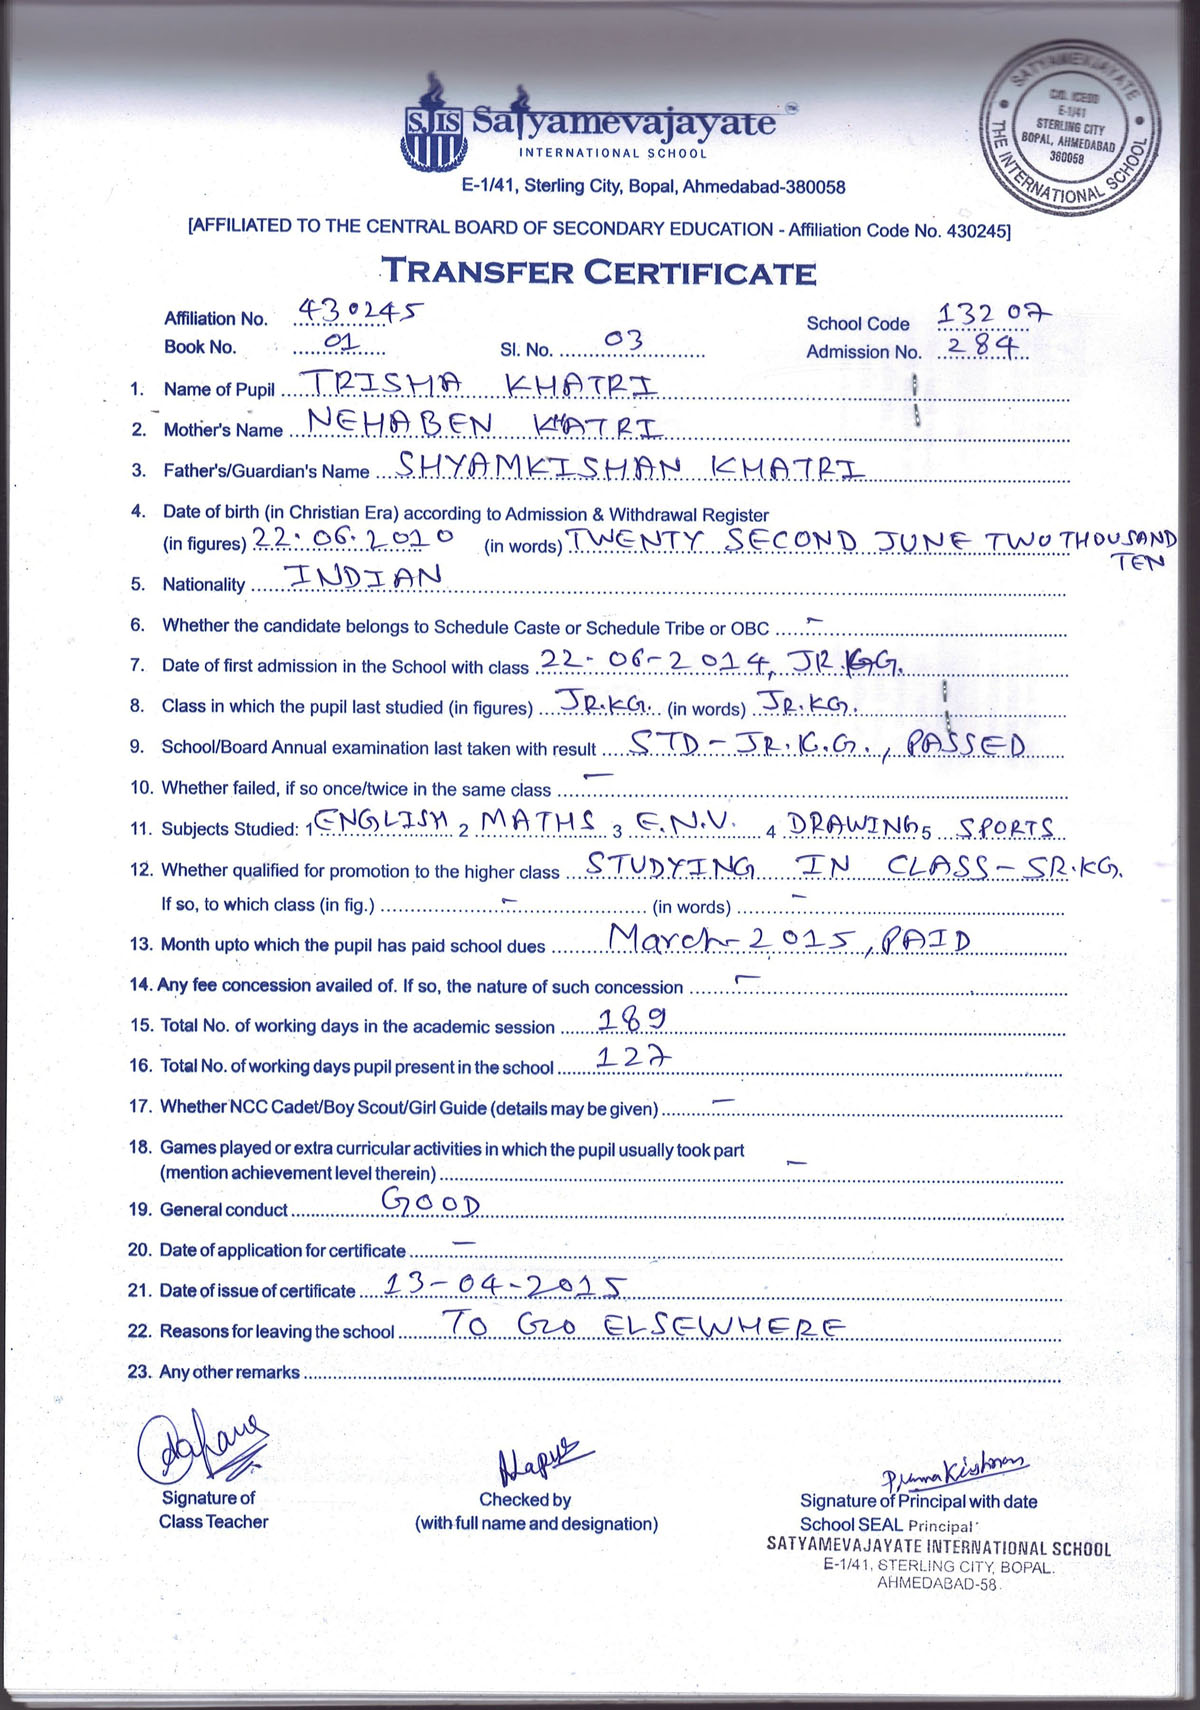 SJIS Satyamevajayate
INTERNATIONAL SCHOOL
E-1/41, Sterling City, Bopal, Ahmedabad-380058
SATYAMEVAJAYATE
THE INTERNATIONAL SCHOOL
E-1/41
STERLING CITY
BOPAL, AHMEDABAD
380058
[AFFILIATED TO THE CENTRAL BOARD OF SECONDARY EDUCATION - Affiliation Code No. 430245]
TRANSFER CERTIFICATE
Affiliation No. 430245 School Code 13207
Book No. 01 Sl. No. 03 Admission No. 284
1. Name of Pupil TRISHA KHATRI
2. Mother's Name NEHABEN KHATRI
3. Father's/Guardian's Name SHYAMKISHAN KHATRI
4. Date of birth (in Christian Era) according to Admission & Withdrawal Register
(in figures) 22.06.2010 (in words) TWENTY SECOND JUNE TWO THOUSAND
TEN
5. Nationality INDIAN
6. Whether the candidate belongs to Schedule Caste or Schedule Tribe or OBC -
7. Date of first admission in the School with class 22-06-2014, JR.KG.
8. Class in which the pupil last studied (in figures) JR.KG. (in words) JR.KG.
9. School/Board Annual examination last taken with result STD-JR.K.G., PASSED
10. Whether failed, if so once/twice in the same class -
11. Subjects Studied: 1 ENGLISH 2 MATHS 3 E.N.V. 4 DRAWING 5 SPORTS
12. Whether qualified for promotion to the higher class STUDYING IN CLASS-SR.KG.
If so, to which class (in fig.) - (in words) -
13. Month upto which the pupil has paid school dues March-2015, PAID
14. Any fee concession availed of. If so, the nature of such concession -
15. Total No. of working days in the academic session 189
16. Total No. of working days pupil present in the school 127
17. Whether NCC Cadet/Boy Scout/Girl Guide (details may be given) -
18. Games played or extra curricular activities in which the pupil usually took part
(mention achievement level therein) -
19. General conduct GOOD
20. Date of application for certificate -
21. Date of issue of certificate 13-04-2015
22. Reasons for leaving the school TO GO ELSEWHERE
23. Any other remarks
Signature of Checked by Signature of Principal with date
Class Teacher (with full name and designation) School SEAL Principal
SATYAMEVAJAYATE INTERNATIONAL SCHOOL
E-1/41, STERLING CITY, BOPAL.
AHMEDABAD-58.